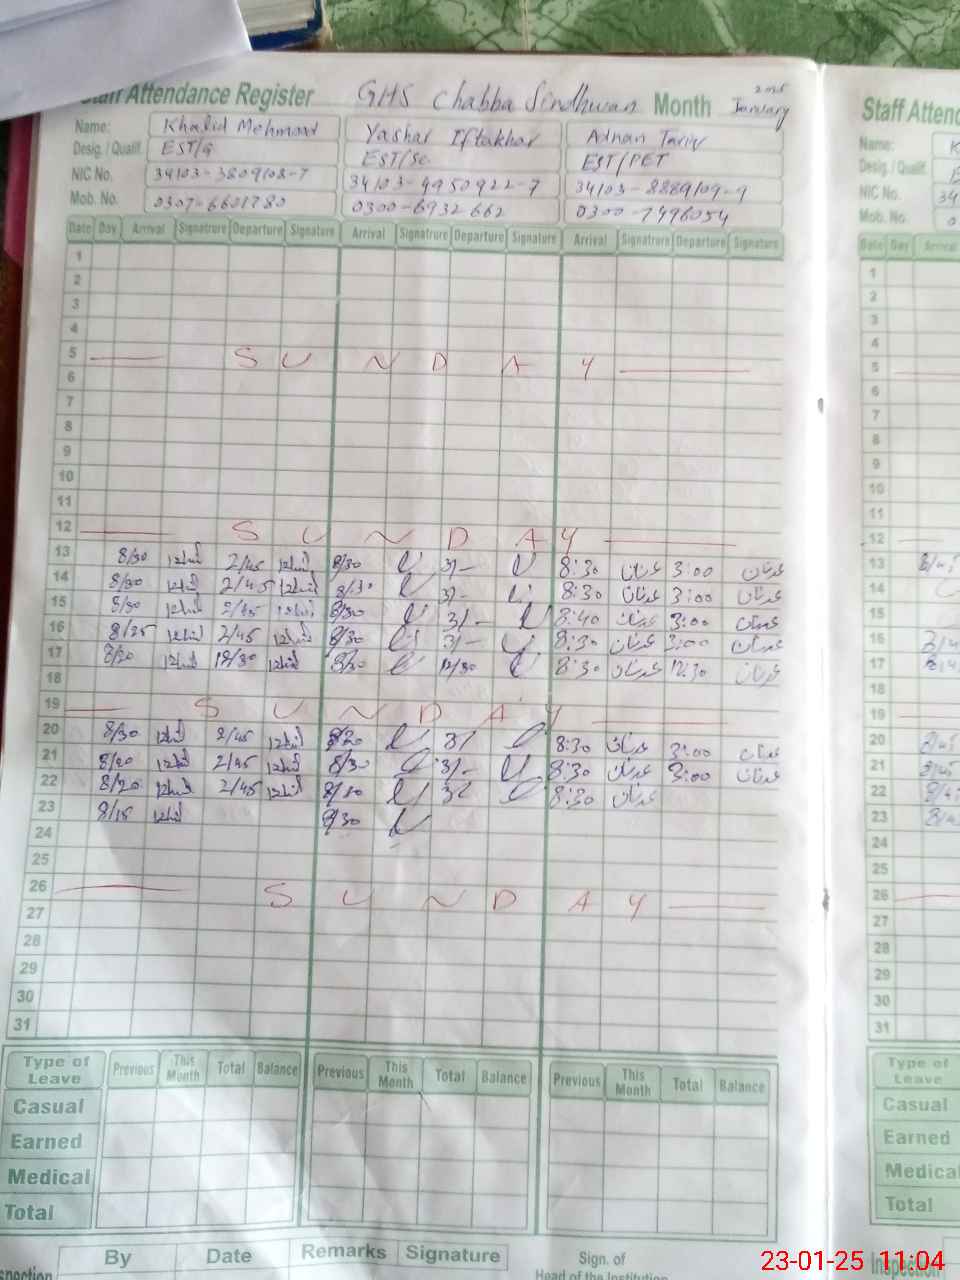 Staff Attendance Register GHS Chabba Sindhwan Month January 2025
Name: Khalid Mehmood Yashar Iftakhar Adnan Tariq
Desig. / Qualif. EST/G EST/Sc EST/PET
NIC No. 34103-3809108-7 34103-4950922-7 34103-8889109-9
Mob. No. 0307-6601780 0300-6932662 0300-7496054
Date Day Arrival Signatrure Departure Signature Arrival Signatrure Departure Signature Arrival Signatrure Departure Signature
1
2
3
4
5 SUNDAY
6
7
8
9
10
11
12 SUNDAY
13 8/30 2/45 8/30 3/- 8:30 عدنان 3:00 عدنان
14 8/30 2/45 8/30 3/- 8:30 عدنان 3:00 عدنان
15 8/30 2/45 8/30 3/- 8:40 عدنان 3:00 عدنان
16 8/25 2/45 8/30 3/- 8:30 عدنان 3:00 عدنان
17 8/20 12/30 8/30 12/30 8:30 عدنان 12:30 عدنان
18
19 SUNDAY
20 8/30 2/45 8/30 3/ 8:30 عدنان 3:00 عدنان
21 8/20 2/45 8/30 3/- 8:30 عدنان 3:00 عدنان
22 8/20 2/45 8/30 3/ 8:30 عدنان
23 8/15 8/30
24
25
26 SUNDAY
27
28
29
30
31
Type of Leave Previous This Month Total Balance Previous This Month Total Balance Previous This Month Total Balance
Casual
Earned
Medical
Total
By Date Remarks Signature Sign. of
Inspection Head of the Institution
Staff Attend
Name: K
Desig. / Qualif.
NIC No. 34
Mob. No. 0
Date Day Arrival
1
2
3
4
5
6
7
8
9
10
11
12
13
14
15
16
17
18
19
20
21
22
23
24
25
26
27
28
29
30
31
Type of Leave
Casual
Earned
Medical
Total
Inspection
23-01-25 11:04